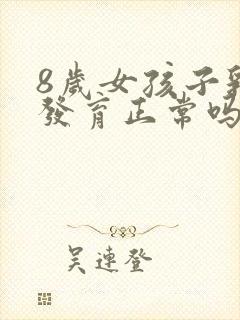 8歲女孩子
發育正常吗
吳連登